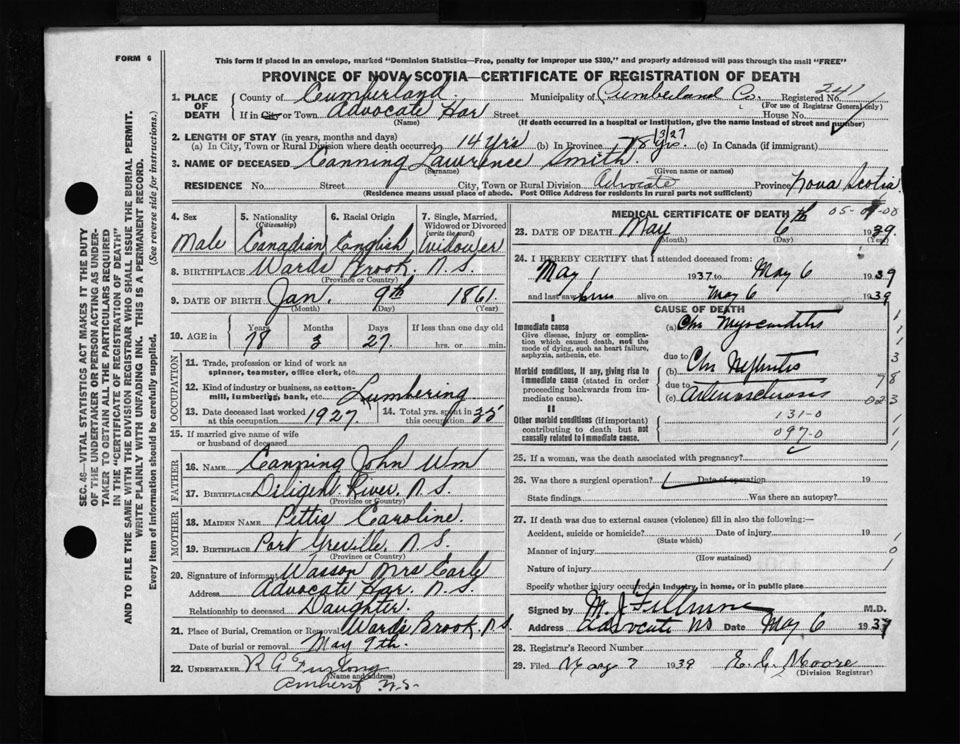 FORM 6
This form if placed in an envelope, marked "Dominion Statistics—Free, penalty for improper use $300," and properly addressed will pass through the mail "FREE"
PROVINCE OF NOVA SCOTIA—CERTIFICATE OF REGISTRATION OF DEATH
1. PLACE OF DEATH County of Cumberland Municipality of Cumberland Co. Registered No. 241
(For use of Registrar General only)
If in City or Town Advocate Har Street House No.
(Name) (If death occurred in a hospital or institution, give the name instead of street and number)
2. LENGTH OF STAY (in years, months and days) 13/27
(a) In City, Town or Rural Division where death occurred 14 Yrs (b) In Province 78 Yrs. (c) In Canada (if immigrant)
3. NAME OF DECEASED Canning Lawrence Smith.
(Surname) (Given name or names)
RESIDENCE No. Street City, Town or Rural Division Advocate Province Nova Scotia
(Residence means usual place of abode. Post Office Address for residents in rural parts not sufficient)
4. Sex Male
5. Nationality (Citizenship) Canadian
6. Racial Origin English
7. Single, Married, Widowed or Divorced (write the word) Widower
8. BIRTHPLACE Wards Brook. N.S.
(Province or Country)
9. DATE OF BIRTH Jan. 9th 1861.
(Month) (Day) (Year)
10. AGE in Years Months Days If less than one day old
78 3 27 hrs. or min.
OCCUPATION
11. Trade, profession or kind of work as spinner, teamster, office clerk, etc.
12. Kind of industry or business, as cotton-mill, lumbering, bank, etc. Lumbering
13. Date deceased last worked at this occupation 1927
14. Total yrs. spent in this occupation 35
15. If married give name of wife or husband of deceased
FATHER
16. NAME Canning John Wm
17. BIRTHPLACE Diligent River. N.S.
(Province or Country)
MOTHER
18. MAIDEN NAME Pettis Caroline.
19. BIRTHPLACE Port Greville. N.S.
(Province or Country)
20. Signature of informant Wasson Mrs Earle
Address Advocate Har. N.S.
Relationship to deceased Daughter.
21. Place of Burial, Cremation or Removal Wards Brook. N.S.
Date of burial or removal May 9th.
22. UNDERTAKER R G Furlong
(Name and address)
Amherst N.S.
MEDICAL CERTIFICATE OF DEATH
23. DATE OF DEATH May 6th 1939
(Month) (Day) (Year)
24. I HEREBY CERTIFY that I attended deceased from:
May 1 1937 to May 6 1939
and last saw him alive on May 6 1939
CAUSE OF DEATH
I
Immediate cause
Give disease, injury or complication which caused death, not the mode of dying, such as heart failure, asphyxia, asthenia, etc.
(a) Chr Myocarditis
due to
Morbid conditions, if any, giving rise to immediate cause (stated in order proceeding backwards from immediate cause).
(b) Chr Nephritis
due to
(c) Arteriosclerosis
II
Other morbid conditions (if important) contributing to death but not causally related to immediate cause.
131-0
097-0
25. If a woman, was the death associated with pregnancy?
26. Was there a surgical operation? Date of operation 19
State findings Was there an autopsy?
27. If death was due to external causes (violence) fill in also the following:—
Accident, suicide or homicide? Date of injury 19
(State which)
Manner of injury
(How sustained)
Nature of injury
Specify whether injury occurred in industry, in home, or in public place
Signed by M. J. Fillmore M.D.
Address Advocate NS Date May 6 1939
28. Registrar's Record Number
29. Filed May 7 1939 E. C. Moore
(Division Registrar)
SEC. 46—VITAL STATISTICS ACT MAKES IT THE DUTY OF THE UNDERTAKER OR PERSON ACTING AS UNDERTAKER TO OBTAIN ALL THE PARTICULARS REQUIRED IN THE "CERTIFICATE OF REGISTRATION OF DEATH" AND TO FILE THE SAME WITH THE DIVISION REGISTRAR WHO SHALL ISSUE THE BURIAL PERMIT.
WRITE PLAINLY WITH UNFADING INK. THIS IS A PERMANENT RECORD.
Every item of information should be carefully supplied. (See reverse side for instructions.)